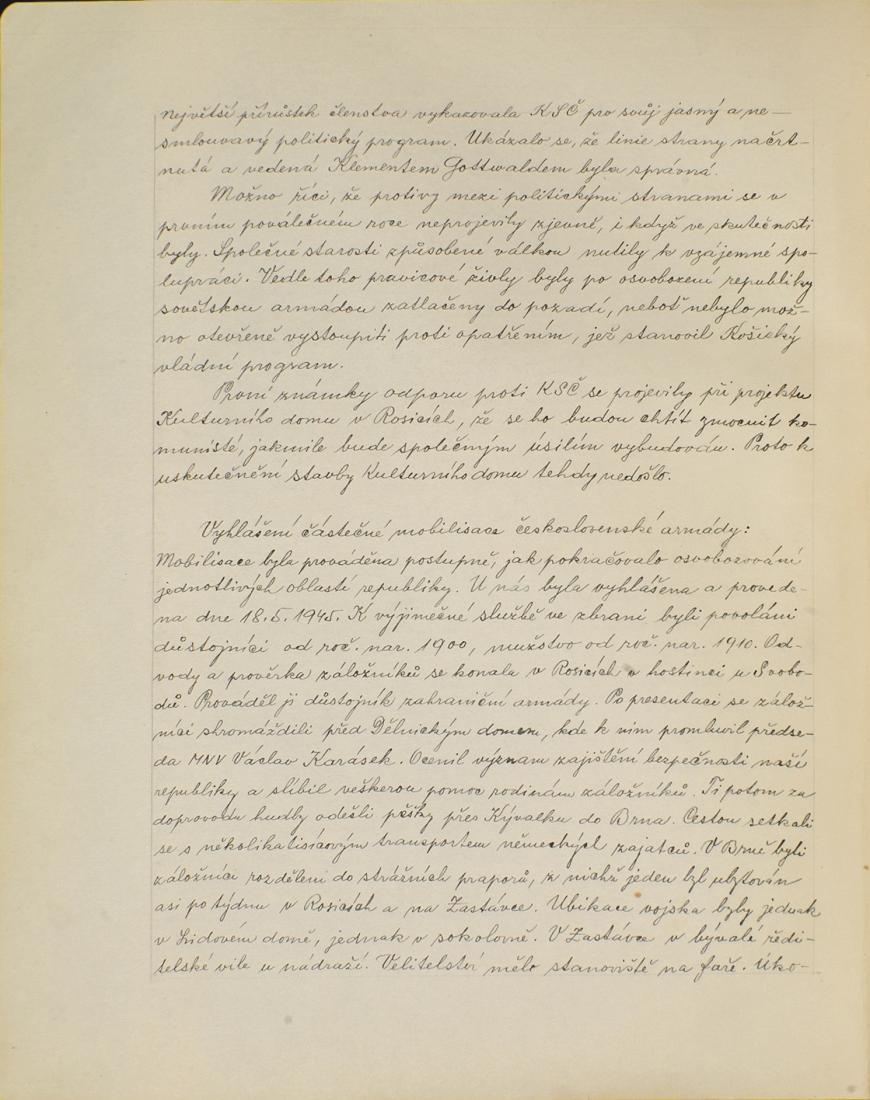 největší přírůstek členstva vykazovala KSČ pro svůj jasný a ne-
smlouvavý politický program. Ukázalo se, že linie strany načrt-
nutá a vedená Klementem Gottwaldem byla správná.
Možno říci, že protivy mezi politickými stranami se v
prvním poválečném roce neprojevily zjevně, i když ve skutečnosti
byly. Společné starosti způsobené válkou nutily k vzájemné spo-
lupráci. Vedle toho pravicové živly byly po osvobození republiky
sovětskou armádou zatlačeny do pozadí, neboť nebylo mož-
no otevřeně vystoupiti proti opatřením, jež stanovil Košický
vládní program.
První známky odporu proti KSČ se projevily při projektu
Kulturního domu v Rosicích, že se ho budou chtít zmocnit ko-
munisté, jakmile bude společným úsilím vybudován. Proto k
uskutečnění stavby Kulturního domu tehdy nedošlo.
Vyhlášení částečné mobilisace československé armády:
Mobilisace byla prováděna postupně, jak pokračovalo osvobozování
jednotlivých oblastí republiky. U nás byla vyhlášena a provede-
na dne 18.5.1945. K výjimečné službě ve zbrani byli povoláni
důstojníci od roč. nar. 1900, mužstvo od roč. nar. 1910. Od-
vody a prověrka záložníků se konala v Rosicích v hostinci u Svobo-
dů. Prováděl ji důstojník zahraniční armády. Po presentaci se zálož-
níci shromáždili před Dělnickým domem, kde k nim promluvil předse-
da MNV Václav Karásek. Ocenil význam zajištění bezpečnosti naší
republiky a slíbil veškerou pomoc rodinám záložníků. Ti potom za
doprovodu hudby odešli pěšky přes Kývalku do Brna. Cestou setkali
se s několikatisícovým transportem německých zajatců. V Brně byli
záložníci rozděleni do strážních praporů, z nichž jeden byl ubytován
asi po týdnu v Rosicích a na Zastávce. Ubikace vojska byly jednak
v Lidovém domě, jednak v sokolovně. V Zastávce v bývalé ředi-
telské vile u nádraží. Velitelství mělo stanoviště na faře. Úko-